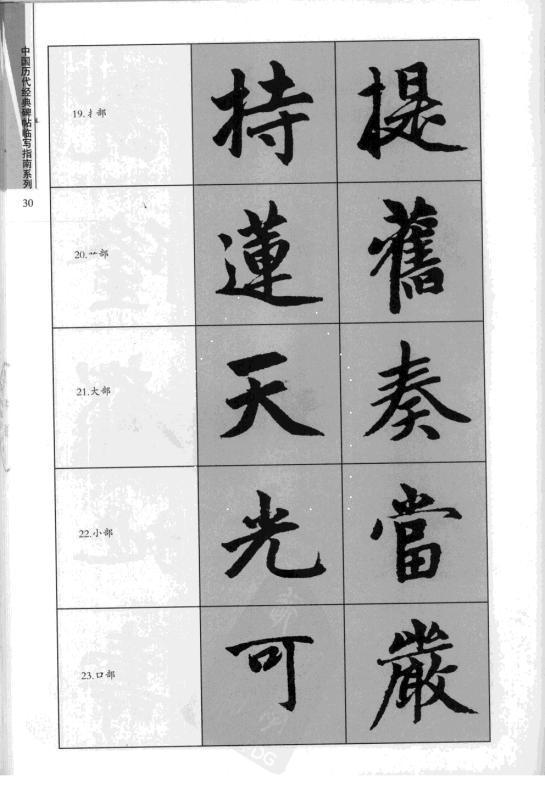 中国历代经典碑帖临写指南系列
30
19.扌部
持 提
20.艹部
蓮 舊
21.大部
天 奏
22.小部
光 當
23.口部
可 嚴